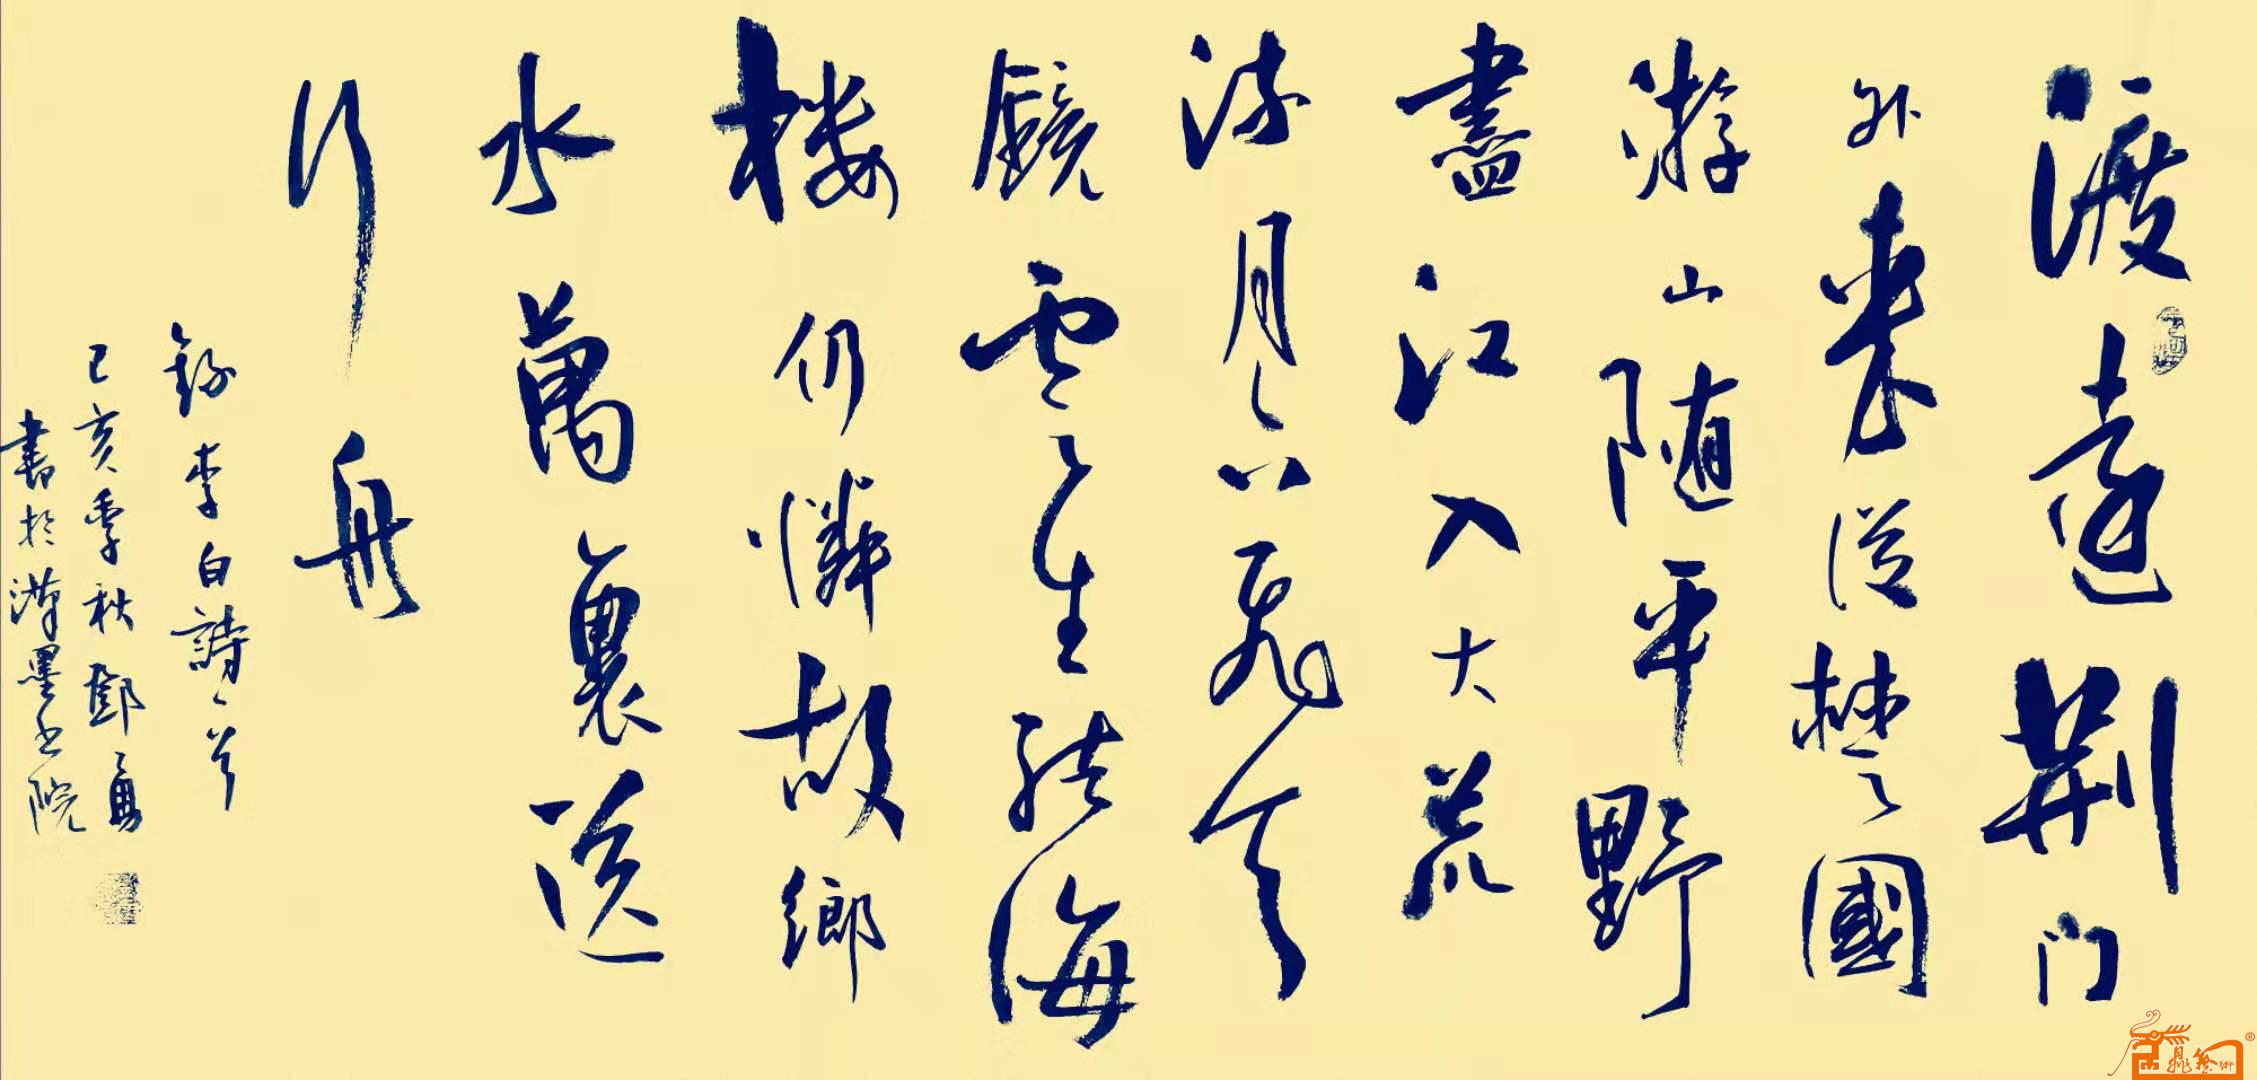 渡遠荆门
外来從楚國
游山随平野
盡江入大荒
流月下飛天
鏡雲生結海
楼仍憐故鄉
水萬裏送
行舟
錄李白詩一首
己亥季秋鄧勇
書於漢墨书院